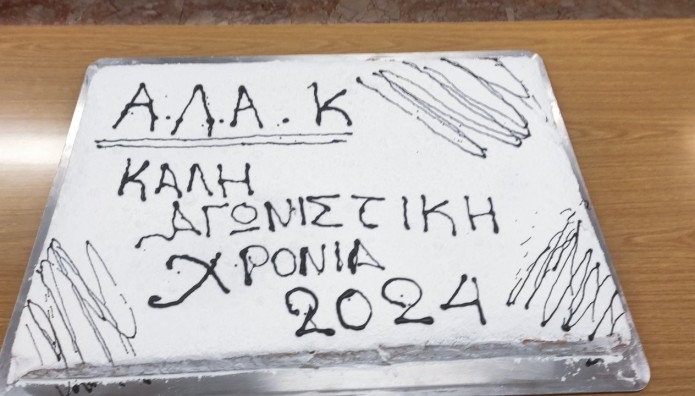 Α.Λ.Α.Κ
ΚΑΛΗ
ΑΓΩΝΙΣΤΙΚΗ
ΧΡΟΝΙΑ
2024